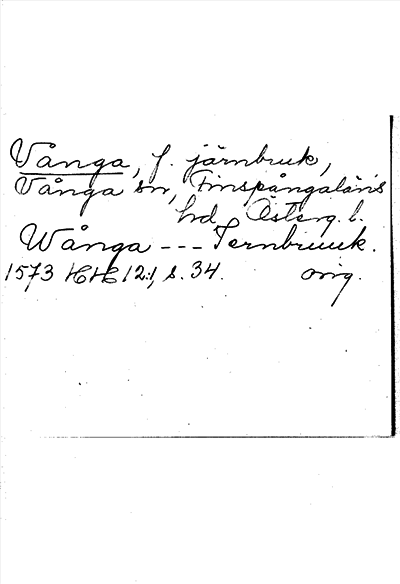 Vånga, f. järnbruk,
Vånga sn, Finspångaläns
hd, Österg. l.
Wånga --- Jernbruuk.
1573 HH 12:1, s. 34. orig.